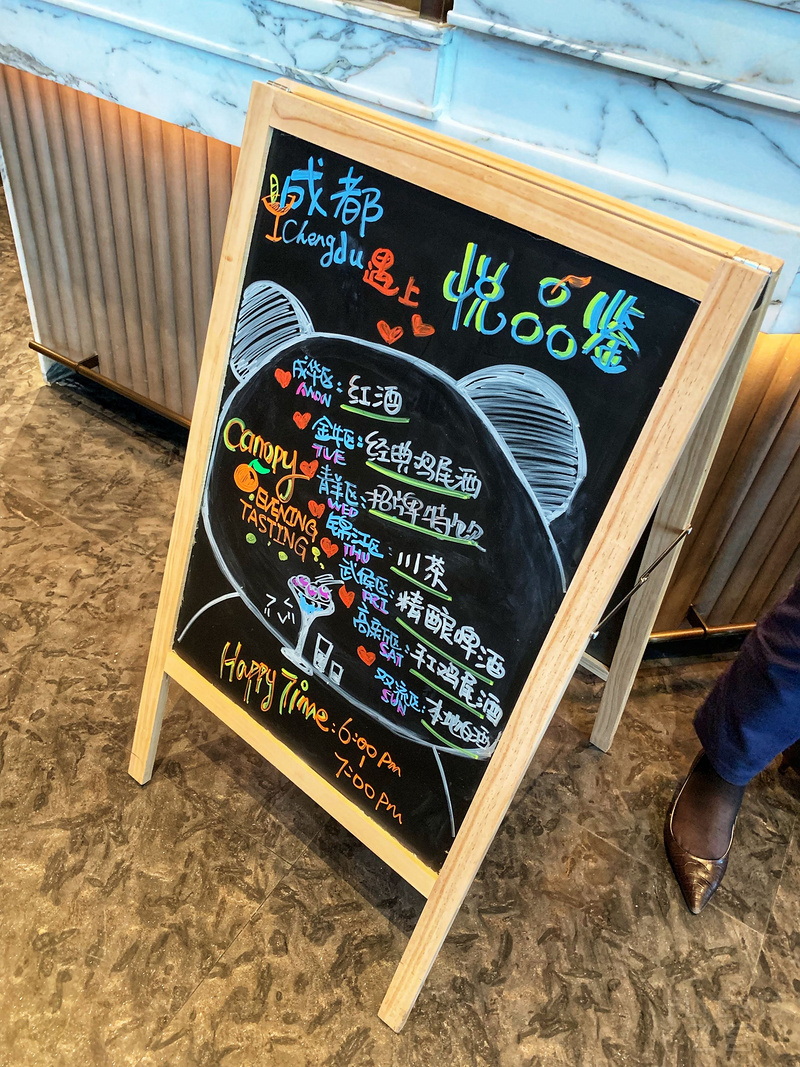 成都
Chengdu
遇上
悦品鉴
成华区: 红酒
MON
金牛区: 经典鸡尾酒
TUE
Canopy
青羊区: 招牌特饮
WED
EVENING
TASTING
锦江区: 川茶
THU
武侯区: 精酿啤酒
FRI
高新区: 手工鸡尾酒
SAT
双流区: 本地白酒
SUN
Happy Time: 6:00 pm
7:00 pm